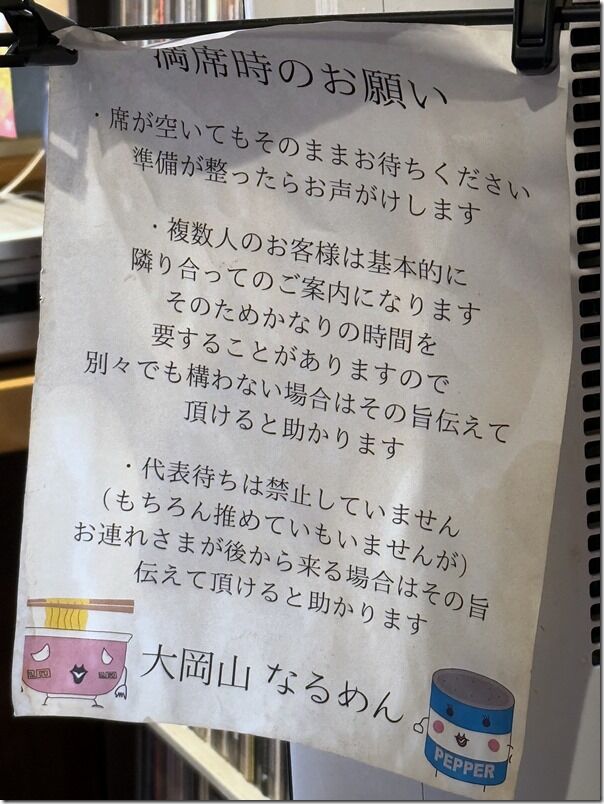 満席時のお願い
・席が空いてもそのままお待ちください
準備が整ったらお声がけします
・複数人のお客様は基本的に
隣り合ってのご案内になります
そのためかなりの時間を
要することがありますので
別々でも構わない場合はその旨伝えて
頂けると助かります
・代表待ちは禁止していません
（もちろん推めていもいませんが）
お連れさまが後から来る場合はその旨
伝えて頂けると助かります
大岡山 なるめん
PEPPER